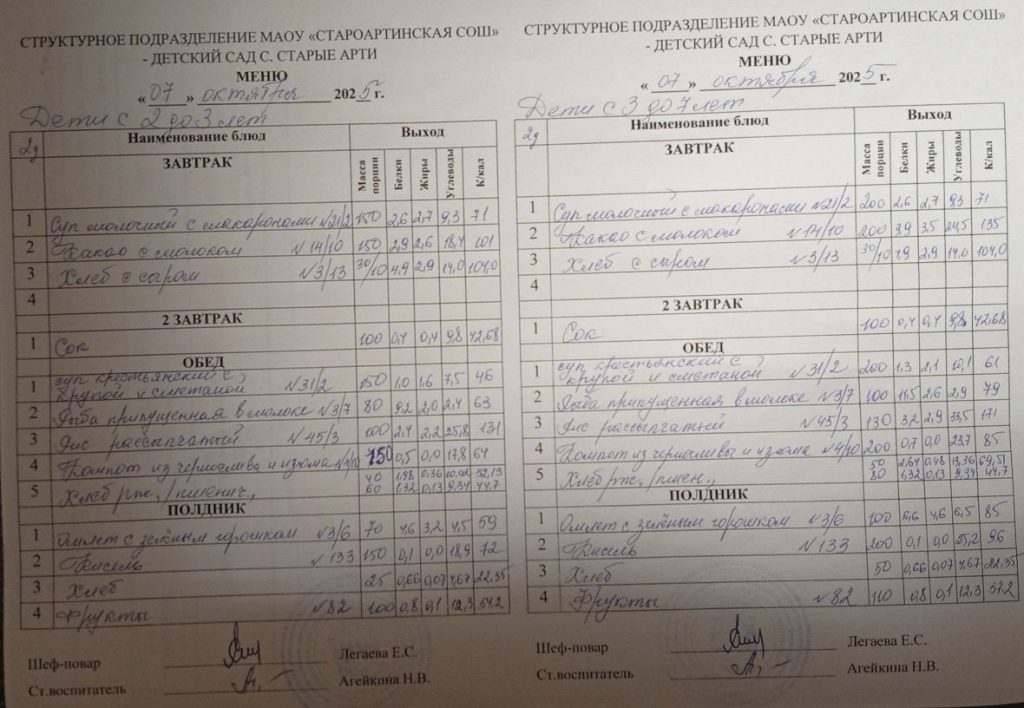 СТРУКТУРНОЕ ПОДРАЗДЕЛЕНИЕ МАОУ «СТАРОАРТИНСКАЯ СОШ»
- ДЕТСКИЙ САД С. СТАРЫЕ АРТИ
МЕНЮ
« 07 » октября 2025 г.
Дети с 2 до 3 лет
2д Наименование блюд Выход
ЗАВТРАК Масса порции Белки Жиры Углеводы К/кал
1 Суп молочный с макаронами №21/2 150 2,6 2,7 9,3 71
2 Какао с молоком №14/10 150 2,9 2,6 18,4 101
3 Хлеб с сыром №3/13 30/10 4,9 2,9 14,0 104,0
4
2 ЗАВТРАК
1 Сок 100 0,4 0,4 9,8 42,68
ОБЕД
1 суп крестьянский с
крупой и сметаной №31/2 150 1,0 1,6 7,5 46
2 Рыба припущенная в молоке №3/7 80 9,2 2,0 2,4 63
3 Рис рассыпчатый №45/3 100 2,4 2,2 25,8 131
4 Компот из чернослива и изюма №4/10 150 0,5 0,0 17,8 64
40 1,98 0,36 10,02 52,13
5 Хлеб рж., /пшенич., 60 1,32 0,13 9,34 44,7
ПОЛДНИК
1 Омлет с зелёным горошком №3/6 70 4,6 3,2 4,5 59
2 Кисель №133 150 0,1 0,0 18,9 72
3 Хлеб 25 0,66 0,07 4,67 22,35
4 Фрукты №82 100 0,8 0,1 12,3 54,2
Шеф-повар Легаева Е.С.
Ст.воспитатель Агейкина Н.В.
СТРУКТУРНОЕ ПОДРАЗДЕЛЕНИЕ МАОУ «СТАРОАРТИНСКАЯ СОШ»
- ДЕТСКИЙ САД С. СТАРЫЕ АРТИ
МЕНЮ
« 07 » октября 2025 г.
Дети с 3 до 7 лет
2д Наименование блюд Выход
ЗАВТРАК Масса порции Белки Жиры Углеводы К/кал
1 Суп молочный с макаронами №21/2 200 2,6 2,7 9,3 71
2 Какао с молоком №14/10 200 3,9 3,5 24,5 135
3 Хлеб с сыром №3/13 30/10 4,9 2,9 14,0 104,0
4
2 ЗАВТРАК
1 Сок 100 0,4 0,4 9,8 42,68
ОБЕД
1 суп крестьянский с
крупой и сметаной №31/2 200 1,3 2,1 10,1 61
2 Рыба припущенная в молоке №3/7 100 11,5 2,6 2,9 79
3 Рис рассыпчатый №45/3 130 3,2 2,9 33,5 171
4 Компот из чернослива и изюма №4/10 200 0,7 0,0 23,7 85
50 2,64 0,48 13,36 69,51
5 Хлеб рж., /пшен., 80 1,32 0,13 9,34 44,7
ПОЛДНИК
1 Омлет с зелёным горошком №3/6 100 6,6 4,6 6,5 85
2 Кисель №133 200 0,1 0,0 25,2 96
3 Хлеб 50 0,66 0,07 4,67 22,35
4 Фрукты №82 110 0,8 0,1 12,3 54,2
Шеф-повар Легаева Е.С.
Ст.воспитатель Агейкина Н.В.